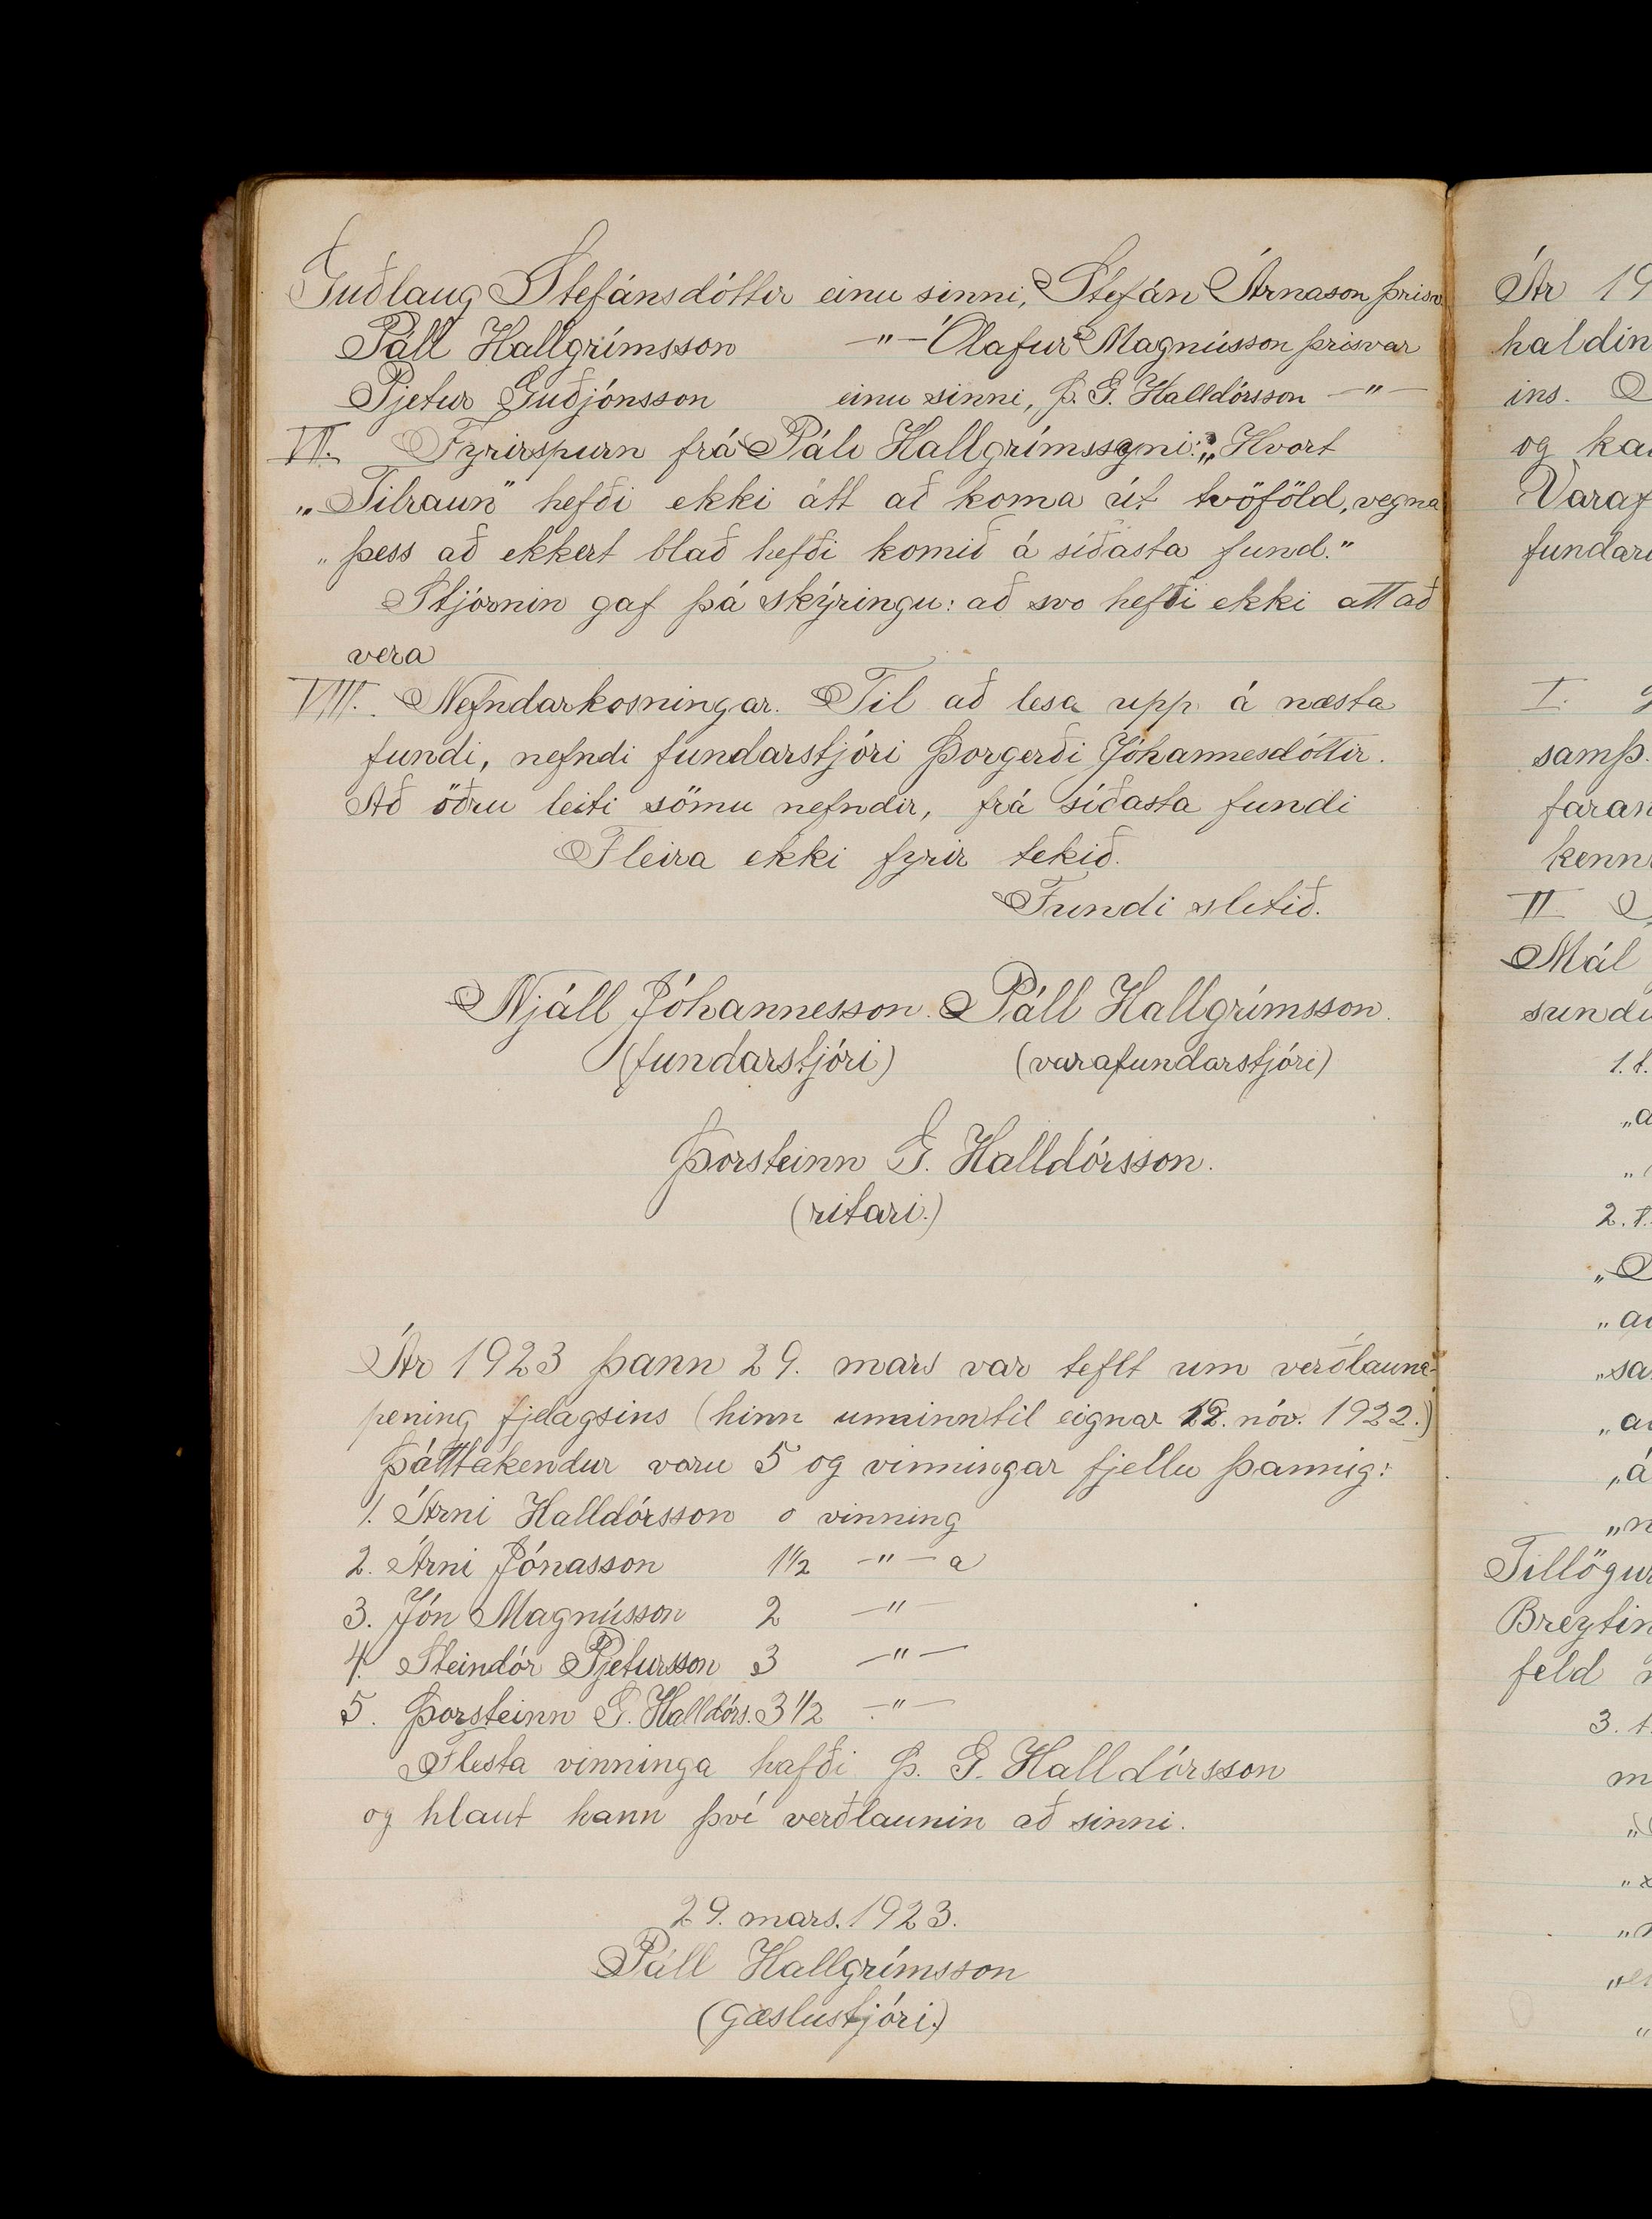 Guðlaug Stefánsdóttir einu sinni, Stefán Árnason þrisv.
Páll Hallgrímsson —"— Ólafur Magnússon þrisvar
Pjetur Guðjónsson einu sinni, Þ. G. Halldórsson —"—
VII. Fyrirspurn frá Páli Hallgrímssyni: „Hvort
„Tilraun" hefði ekki átt að koma út tvöföld, vegna
„þess að ekkert blað hefði komið á síðasta fund."
Stjórnin gaf þá skýringu: að svo hefði ekki átt að
vera
VIII. Nefndarkosningar. Til að lesa upp á næsta
fundi, nefndi fundarstjóri Þorgerði Jóhannesdóttir.
Að öðru leiti sömu nefndir, frá síðasta fundi
Fleira ekki fyrir tekið.
Fundi slitið.
Njáll Jóhannesson. Páll Hallgrímsson.
(fundarstjóri) (varafundarstjóri)
Þorsteinn G. Halldórsson.
(ritari.)
Ár 1923 þann 29. mars var teflt um verðlauna-
pening fjelagsins (hinn unninn til eignar 12. nóv. 1922.)
Þátttakendur voru 5 og vinningar fjellu þannig:
1. Árni Halldórsson 0 vinning
2. Árni Jónasson 1½ —"— a
3. Jón Magnússon 2 —"—
4. Steindór Pjetursson 3 —"—
5. Þorsteinn G. Halldórs. 3 1/2 —"—
Flesta vinninga hafði Þ. G. Halldórsson
og hlaut hann því verðlaunin að sinni.
29. mars. 1923.
Páll Hallgrímsson
(gæslustjóri.)
Ár 19
haldin
ins.
og ka
Varaf
fundar
I.
samþ.
faran
kenn
II
Mál
sund
1. t.
„a
2. t.
„a
„sa
„a
„á
„n
Tillögu
Breytin
feld
3. t.
m